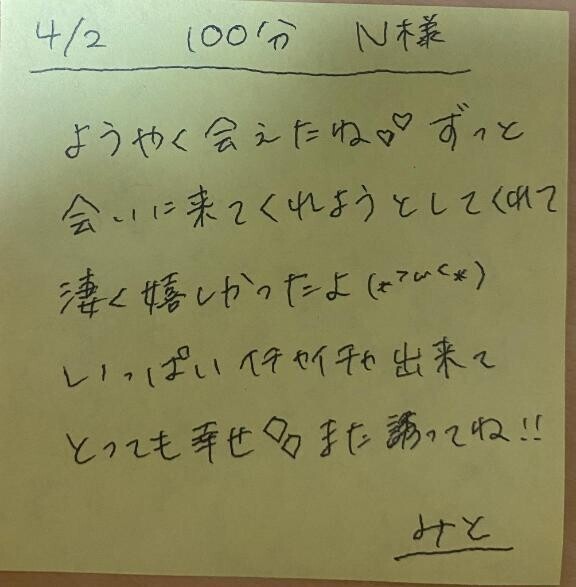 4/2 100分 N様
ようやく会えたね♡♡ ずっと
会いに来てくれようとしてくれて
凄く嬉しかったよ(*>ω<*)
いっぱいイチャイチャ出来て
とっても幸せ♡♡また誘ってね!!
みと